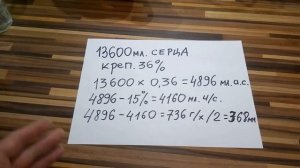 13600мл. СЕРЦА
креп. 36%
13600 × 0,36 = 4896 мл.а.с.
4896 - 15% = 4160 мл.ч/с.
4896 - 4160 = 736 г/х/2 = 368мл